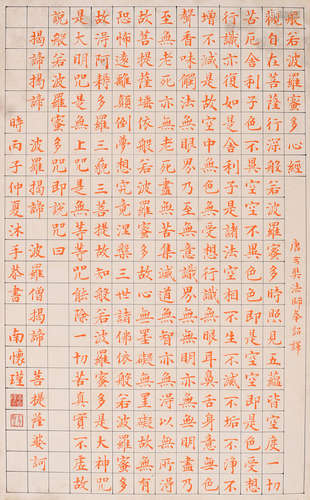 般若波羅蜜多心經
唐玄奘法師奉詔譯
觀自在菩薩行深般若波羅蜜多時照見五蘊皆空度一切
苦厄舍利子色不異空空不異色色即是空空即是色受想
行識亦復如是舍利子是諸法空相不生不滅不垢不淨不
增不減是故空中無色無受想行識無眼耳鼻舌身意無色
聲香味觸法無眼界乃至無意識界無無明亦無無明盡乃
至無老死亦無老死盡無苦集滅道無智亦無得以無所得
故菩提薩埵依般若波羅蜜多故心無罣礙無罣礙故無有
恐怖遠離顛倒夢想究竟涅槃三世諸佛依般若波羅蜜多
故得阿耨多羅三藐三菩提故知般若波羅蜜多是大神咒
是大明咒是無上咒是無等等咒能除一切苦真實不虛故
說般若波羅蜜多咒即說咒曰
揭諦揭諦 波羅揭諦 波羅僧揭諦 菩提薩婆訶
時丙子仲夏沐手恭書 南懷瑾